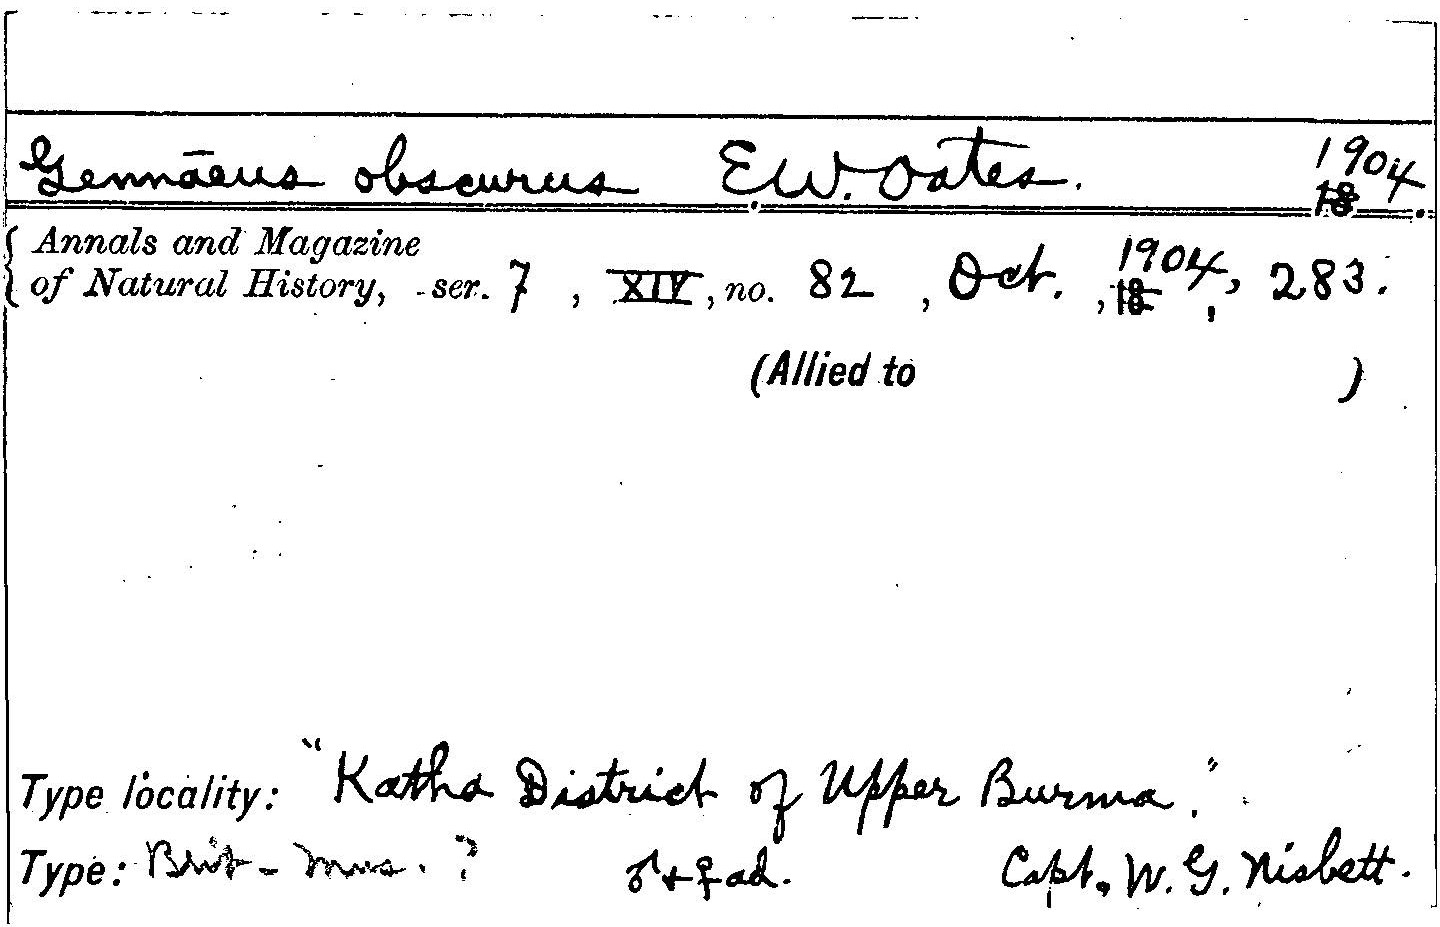 Gennāeus obscurus E.W. Oates. 1904
18
Annals and Magazine
of Natural History, ser. 7, XIV, no. 82, Oct., 1904, 283.
18
(Allied to )
Type locality: "Katha District of Upper Burma."
Type: Brit-Mus. ? ♂ + ♀ ad. Capt. W. G. Nisbett.